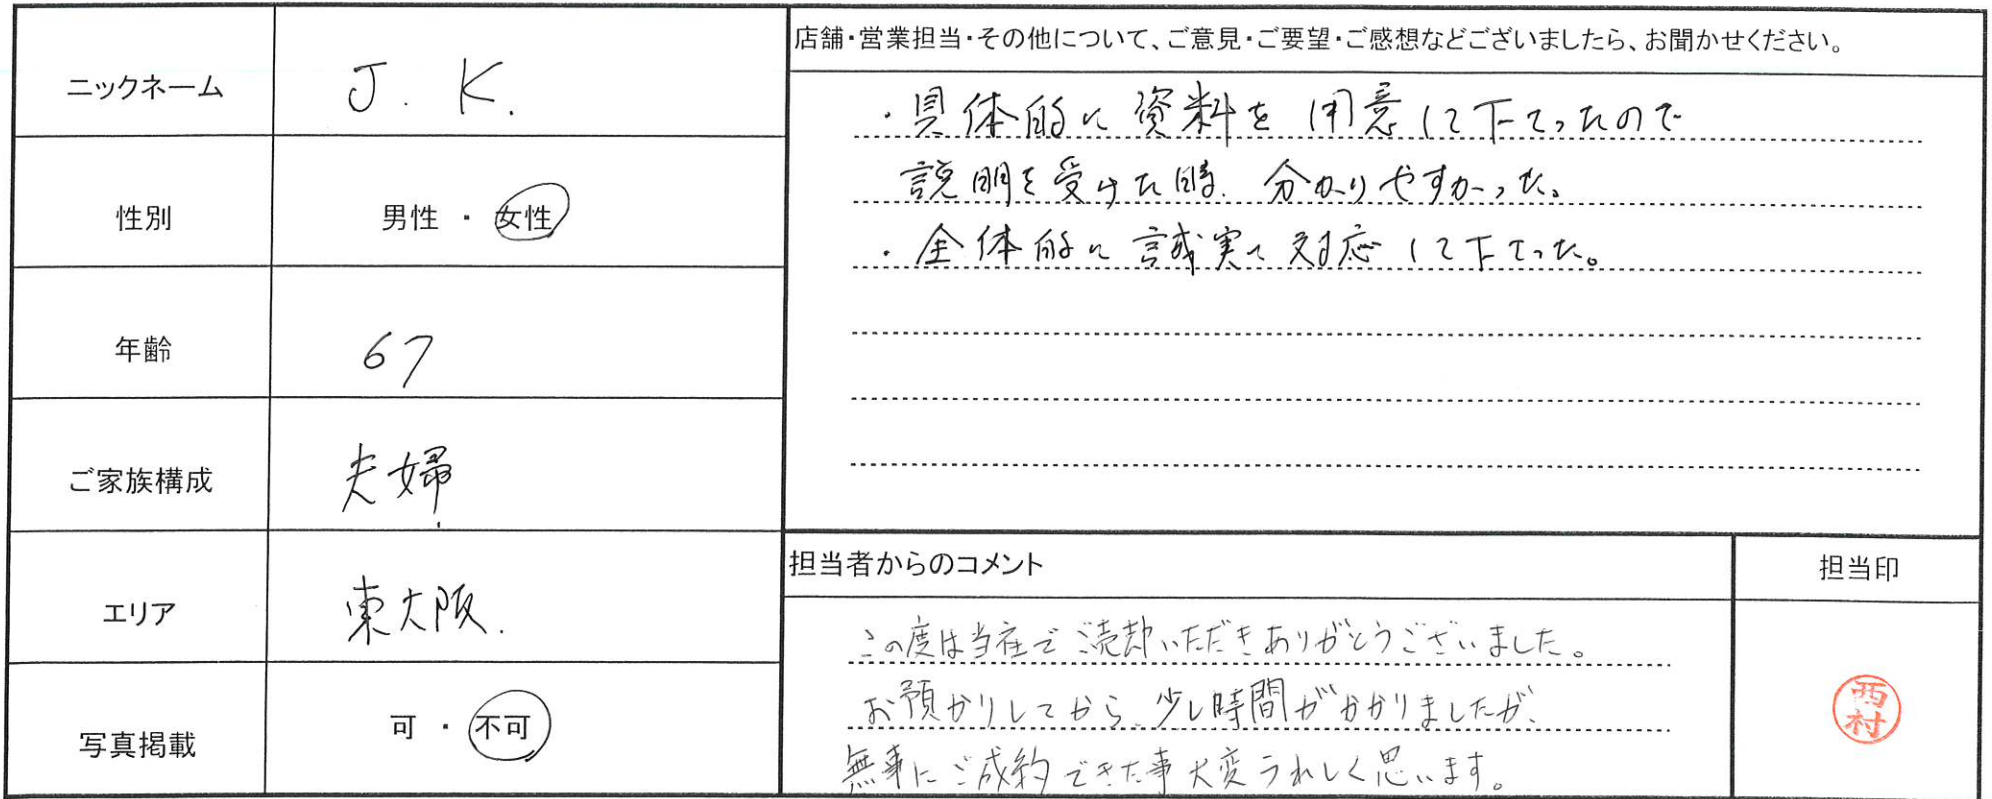 ニックネーム
J. K.
性別
男性 ・ 女性
年齢
67
ご家族構成
夫婦
エリア
東大阪.
写真掲載
可 ・ 不可
店舗・営業担当・その他について、ご意見・ご要望・ご感想などございましたら、お聞かせください。
・具体的に資料を用意して下さったので
説明を受けた時、分かりやすかった。
・全体的に誠実に対応して下さった。
担当者からのコメント
この度は当社でご売却いただきありがとうございました。
お預かりしてから、少し時間がかかりましたが、
無事にご成約できた事大変うれしく思います。
担当印
西村